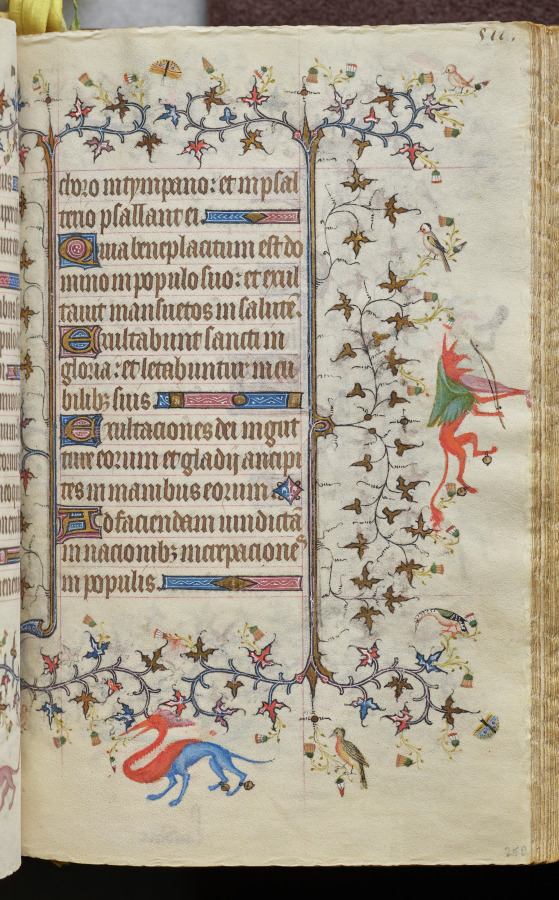 choro in tympano: et in psal
terio psallant ei.
Quia beneplacitum est do
mino in populo suo: et exal
tauit mansuetos in salutē.
Exultabunt sancti in
gloria: et letabuntur in cu
bilibꝫ suis.
Exultaciones dei in gut
ture eorum et gladij ancipi
tes in manibus eorum
Ad faciendam uindictā
in nacionibꝫ increpacioneˢ
in populis.